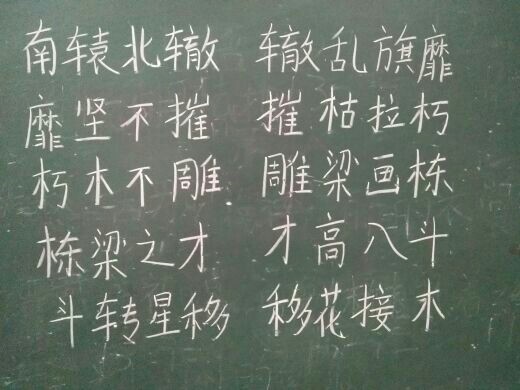 南辕北辙 辙乱旗靡
靡坚不摧 摧枯拉朽
朽木不雕 雕梁画栋
栋梁之才 才高八斗
斗转星移 移花接木